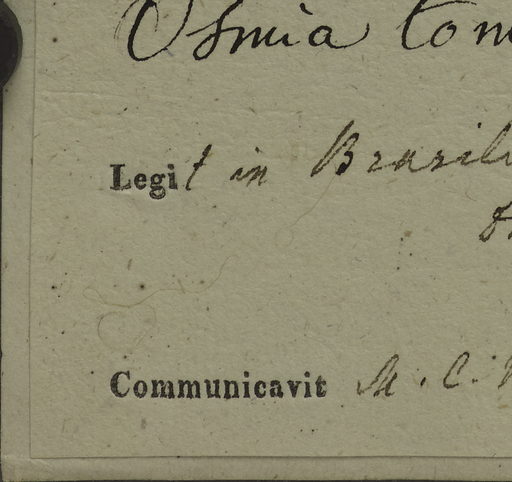 Osmia tom
Legit in Brasili
Communicavit M. C.